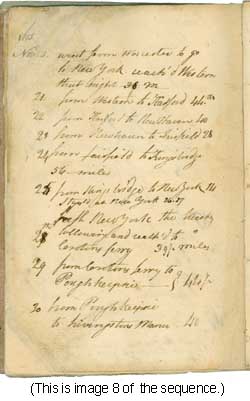 Nov. went from Worcester to go
to New York reach'd Western
that night 38 m
21 from Western to Hartford 44
22 from Hartford to New Haven
23 from Newhaven to Fairfield 28
24 from fairfield to Kingsbridge
56 miles
25 from Kings bridge to New York 14
Stayd at New York 26. 27
New York the
following and reach'd
ferry 39 miles
29 from ferry to
Poughkeepsie 44
30 from Poughkeepsie
to Livingston Manor 40
(This is image 8 of the sequence.)